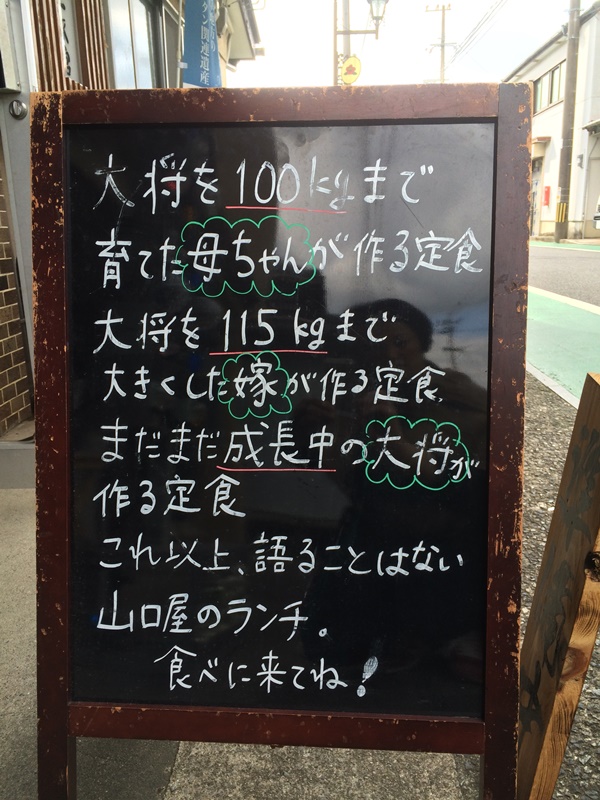 タン関連遺産
大将を100kgまで
育てた母ちゃんが作る定食
大将を115kgまで
大きくした嫁が作る定食
まだまだ成長中の大将が
作る定食
これ以上、語ることはない
山口屋のランチ。
食べに来てね!